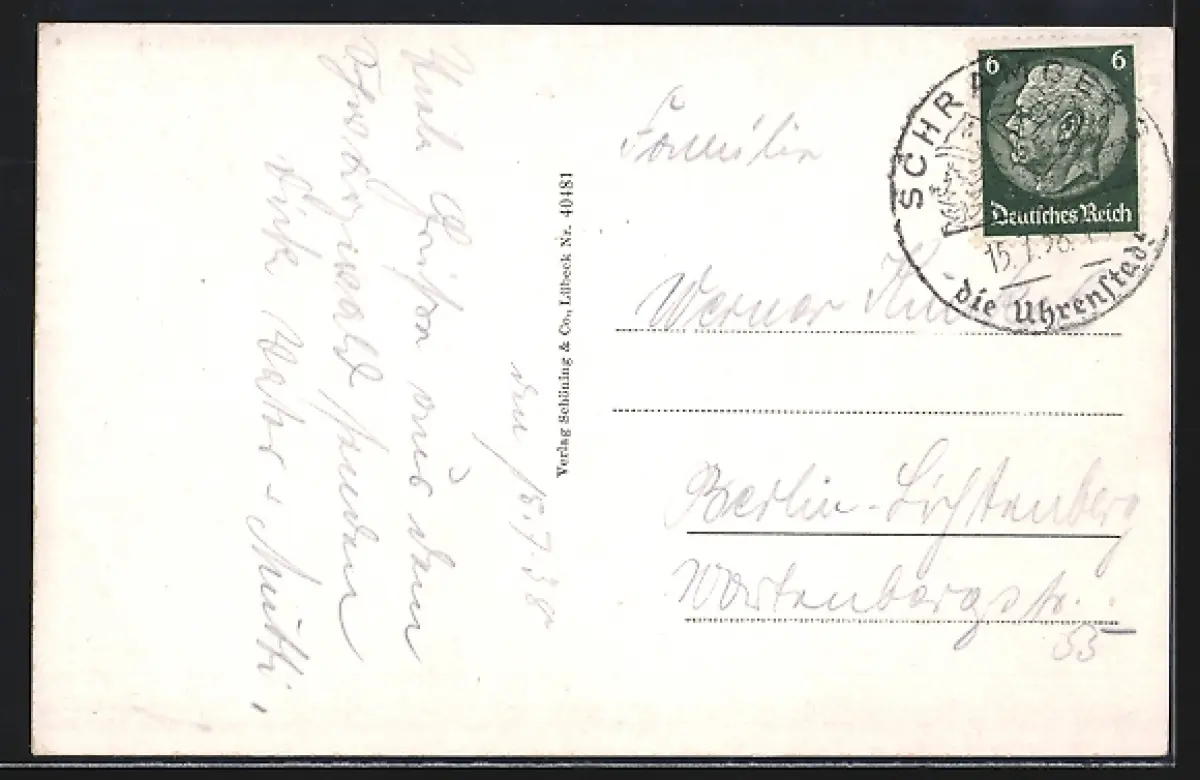 den 15.7.38.
Grüße aus dem
Schwarzwald senden
Vater u. Mutti.
Verlag Schöning & Co., Lübeck Nr. 40481
6 6
Deutsches Reich
SCHRAMBERG
15.7.38
die Uhrenstadt
Familie
Werner
Berlin-Lichtenberg
Wartenbergstr.
53